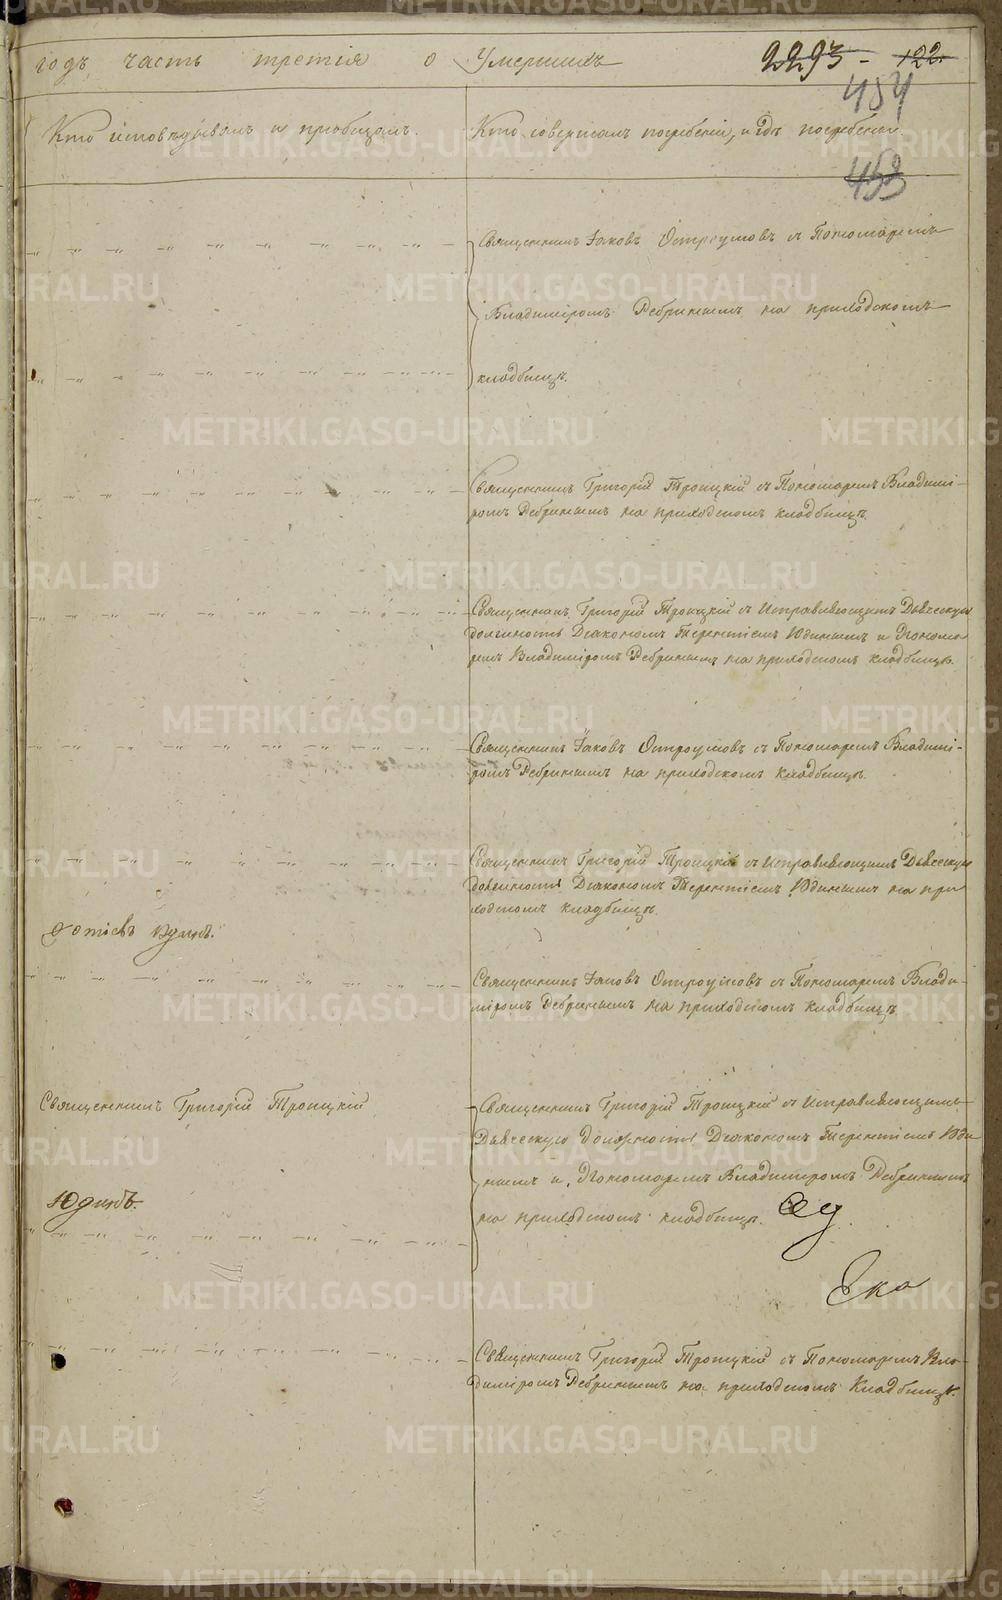 годъ, часть третія о умершихъ
2293 - 122.
454
Кто исповѣдывалъ и пріобщалъ.
Кто совершалъ погребеніе, и гдѣ погребены.
453
Священникъ Іаковъ Остроумовъ съ Пономаремъ
Владиміромъ Ребринымъ на приходскомъ
кладбищѣ.
Священникъ Григорій Троицкій съ Пономаремъ Владимі-
ромъ Ребринымъ на приходскомъ кладбищѣ.
Священникъ Григорій Троицкій съ Исправляющимъ Дьяческую
должность Діакономъ Терентіемъ Юдинымъ и Понома-
ремъ Владиміромъ Ребринымъ на приходскомъ кладбищѣ.
Священникъ Іаковъ Остроумовъ съ Пономаремъ Владимі-
ромъ Ребринымъ на приходскомъ кладбищѣ.
Священникъ Григорій Троицкій съ Исправляющимъ Дьяческую
должность Діакономъ Терентіемъ Юдинымъ на при
ходскомъ кладбищѣ.
Священникъ Іаковъ Остроумовъ съ Пономаремъ Влади-
міромъ Ребринымъ на приходскомъ кладбищѣ
Священникъ Григорій Троицкій
Священникъ Григорій Троицкій съ Исправляющимъ
Дьяческую должность Діакономъ Терентіемъ Юди
нымъ и Пономаремъ Владиміромъ Ребринымъ
Юдинъ.
на приходскомъ кладбищѣ.
Ека
Священникъ Григорій Троицкій съ Пономаремъ Вла-
диміромъ Ребринымъ на приходскомъ Кладбищѣ.
METRIKI.GASO-URAL.RU